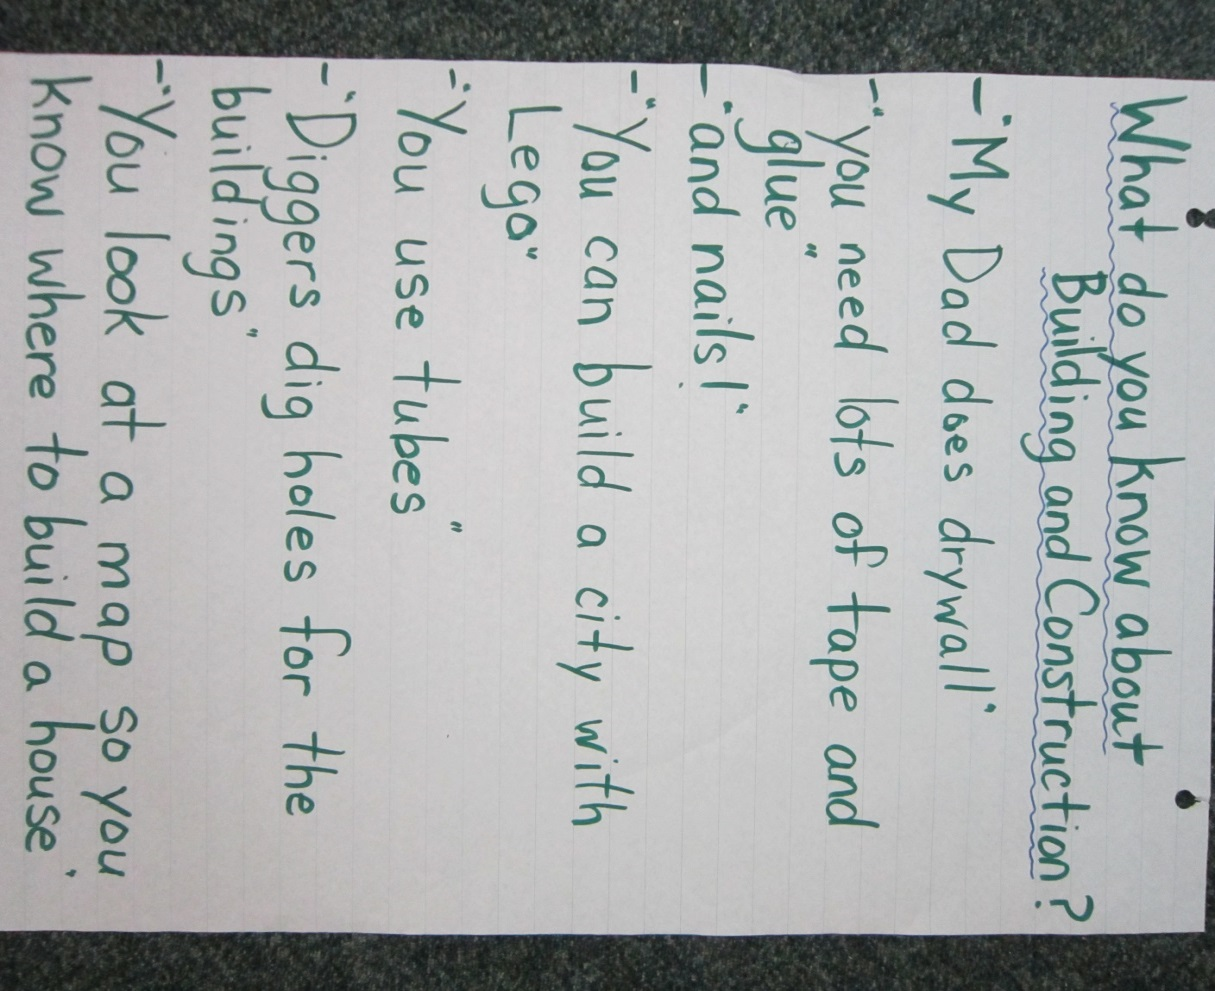 What do you know about
Building and Construction?
- "My Dad does drywall"
- "you need lots of tape and
glue"
- "and nails!"
- "You can build a city with
Lego"
- "You use tubes"
- "Diggers dig holes for the
buildings"
- "You look at a map so you
know where to build a house"